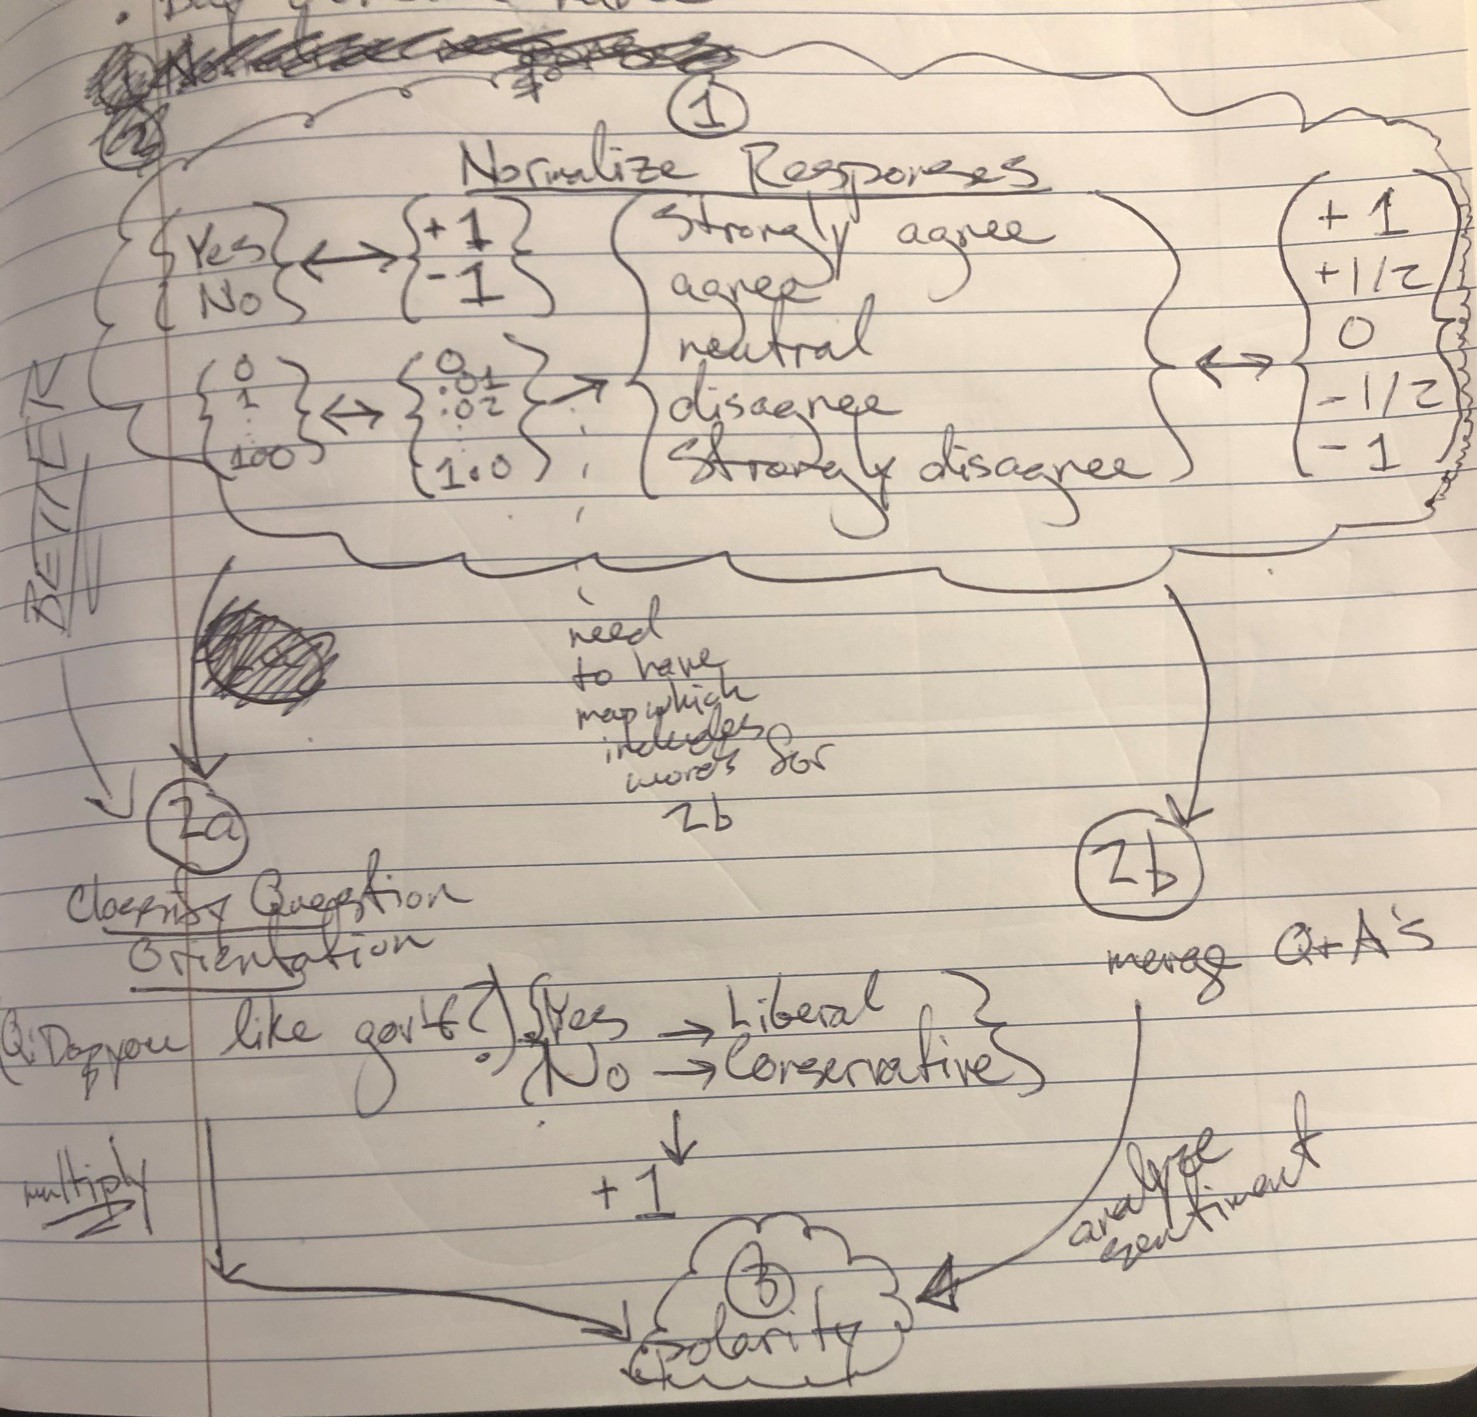 1
2
1
Normalize Responses
Yes
No
+1
-1
Strongly agree
agree
neutral
disagree
Strongly disagree
+1
+1/2
0
-1/2
-1
0
1
⋮
100
0
.01
.02
⋮
1.0
BETTER
need
to have
map which
includes
words for
2b
2a
Classify Question
Orientation
2b
merge Q+A's
Q: Do you like gov't?
Yes → Liberal
No → Conservative
+1
multiply
analyze
sentiment
3
polarity